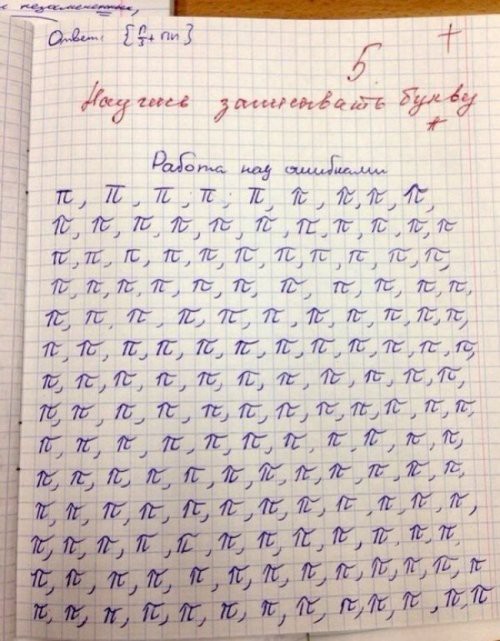 незамеченные,
Ответ: {π/3 + πn}
5 +
Научись записывать букву
π
Работа над ошибками
π, π, π, π, π, π, π, π, π,
π, π, π, π, π, π, π, π, π, π, π
π, π, π, π, π, π, π, π, π, π, π,
π, π, π, π, π, π, π, π, π, π, π, π,
π, π, π, π, π, π, π, π, π, π, π,
π, π, π, π, π, π, π, π, π, π, π, π,
π, π, π, π, π, π, π, π, π, π, π,
π, π, π, π, π, π, π, π, π, π, π, π,
π, π, π, π, π, π, π, π, π, π, π,
π, π, π, π, π, π, π, π, π, π, π, π,
π, π, π, π, π, π, π, π, π, π, π, π,
π, π, π, π, π, π, π, π, π, π, π, π
π, π, π, π, π, π, π, π, π, π, π, π, π
π, π, π, π, π, π, π, π, π, π, π, π, π